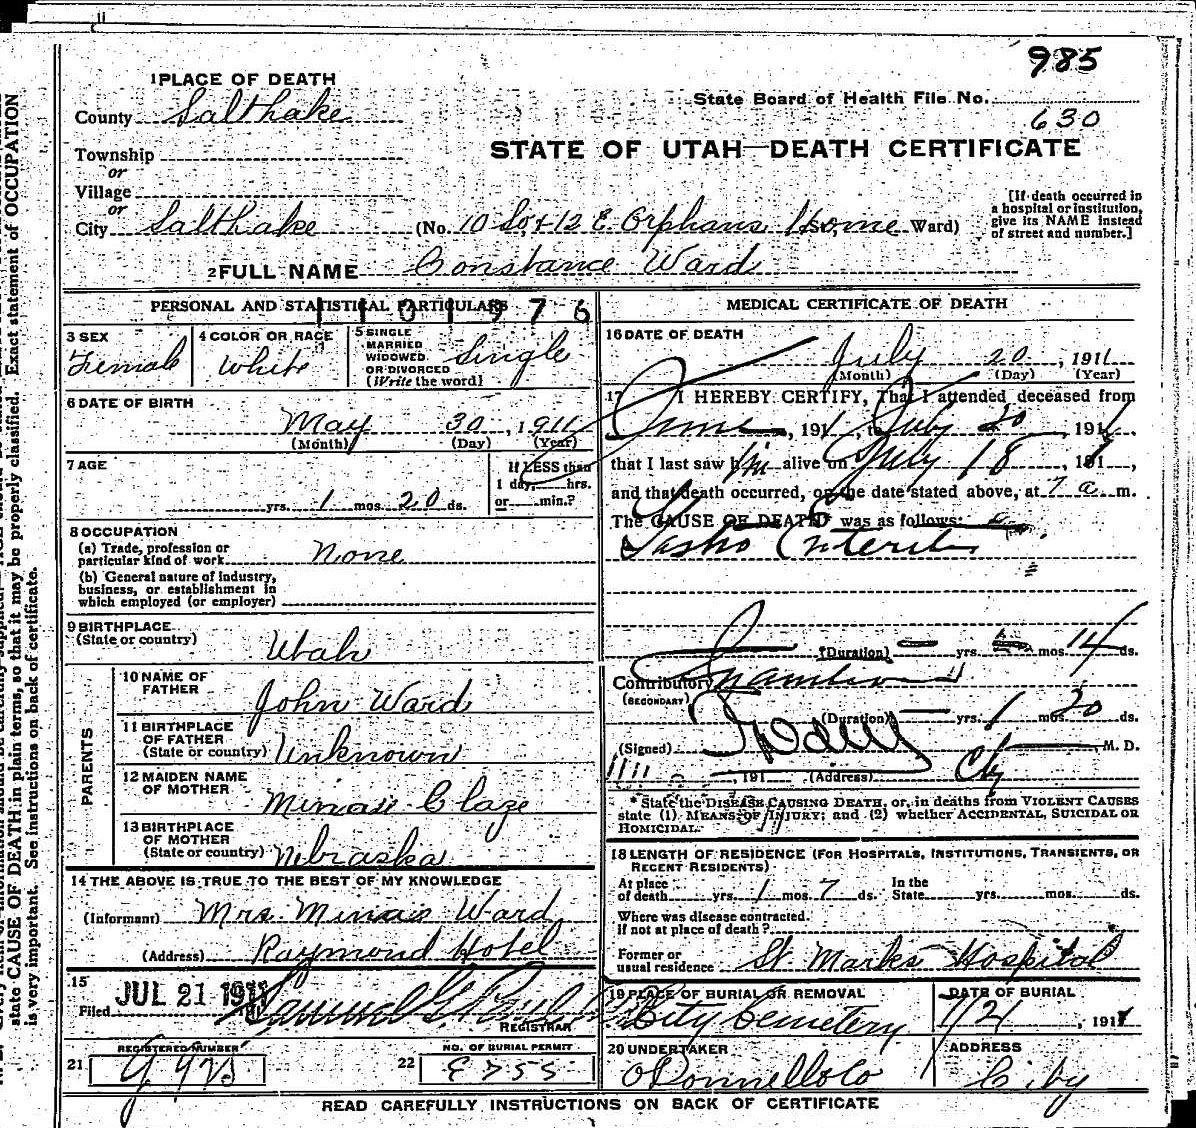 985
1 PLACE OF DEATH
State Board of Health File No.
County Salt Lake
630
Township
STATE OF UTAH—DEATH CERTIFICATE
or
Village
or
City Salt Lake (No. 10 So. & 12 E. Orphans Home St.; Ward)
[If death occurred in a hospital or institution, give its NAME instead of street and number.]
2 FULL NAME Constance Ward
PERSONAL AND STATISTICAL PARTICULARS
1101976
3 SEX
Female
4 COLOR OR RACE
White
5 SINGLE
MARRIED
WIDOWED
OR DIVORCED
(Write the word)
Single
6 DATE OF BIRTH
May 30, 1911
(Month) (Day) (Year)
7 AGE
yrs. 1 mos. 20 ds.
If LESS than
1 day, hrs.
or min.?
8 OCCUPATION
(a) Trade, profession or
particular kind of work None
(b) General nature of industry,
business, or establishment in
which employed (or employer)
9 BIRTHPLACE
(State or country)
Utah
PARENTS
10 NAME OF
FATHER
John Ward
11 BIRTHPLACE
OF FATHER
(State or country) Unknown
12 MAIDEN NAME
OF MOTHER
13 BIRTHPLACE
OF MOTHER
(State or country) Nebraska
14 THE ABOVE IS TRUE TO THE BEST OF MY KNOWLEDGE
(Informant) Mrs. Ward
(Address) Raymond Hotel
15
Filed JUL 21 1911 Samuel G.
REGISTRAR
21 REGISTERED NUMBER
22 NO. OF BURIAL PERMIT
MEDICAL CERTIFICATE OF DEATH
16 DATE OF DEATH
July 20, 1911
(Month) (Day) (Year)
17 I HEREBY CERTIFY, That I attended deceased from
June, 1911, to July 20 1911,
that I last saw him alive on July 18, 1911,
and that death occurred, on the date stated above, at 7 a. m.
The CAUSE OF DEATH* was as follows:
Gastro Enteritis
(Duration) yrs. mos. 14 ds.
Contributory
(SECONDARY)
(Duration) yrs. 1 mos. 20 ds.
(Signed) M. D.
, 191 (Address) City
* State the DISEASE CAUSING DEATH, or, in deaths from VIOLENT CAUSES
state (1) MEANS OF INJURY; and (2) whether ACCIDENTAL, SUICIDAL OR
HOMICIDAL.
18 LENGTH OF RESIDENCE (FOR HOSPITALS, INSTITUTIONS, TRANSIENTS, OR
RECENT RESIDENTS)
At place
of death yrs. 1 mos. 7 ds.
In the
State yrs. mos. ds.
Where was disease contracted.
If not at place of death?
Former or
usual residence St Marks Hospital
19 PLACE OF BURIAL OR REMOVAL
City Cemetery
DATE OF BURIAL
7/21, 1911
20 UNDERTAKER
O'Donnell & Co
ADDRESS
City
READ CAREFULLY INSTRUCTIONS ON BACK OF CERTIFICATE
state CAUSE OF DEATH in plain terms, so that it may be properly classified. Exact statement of OCCUPATION
is very important. See instructions on back of certificate.